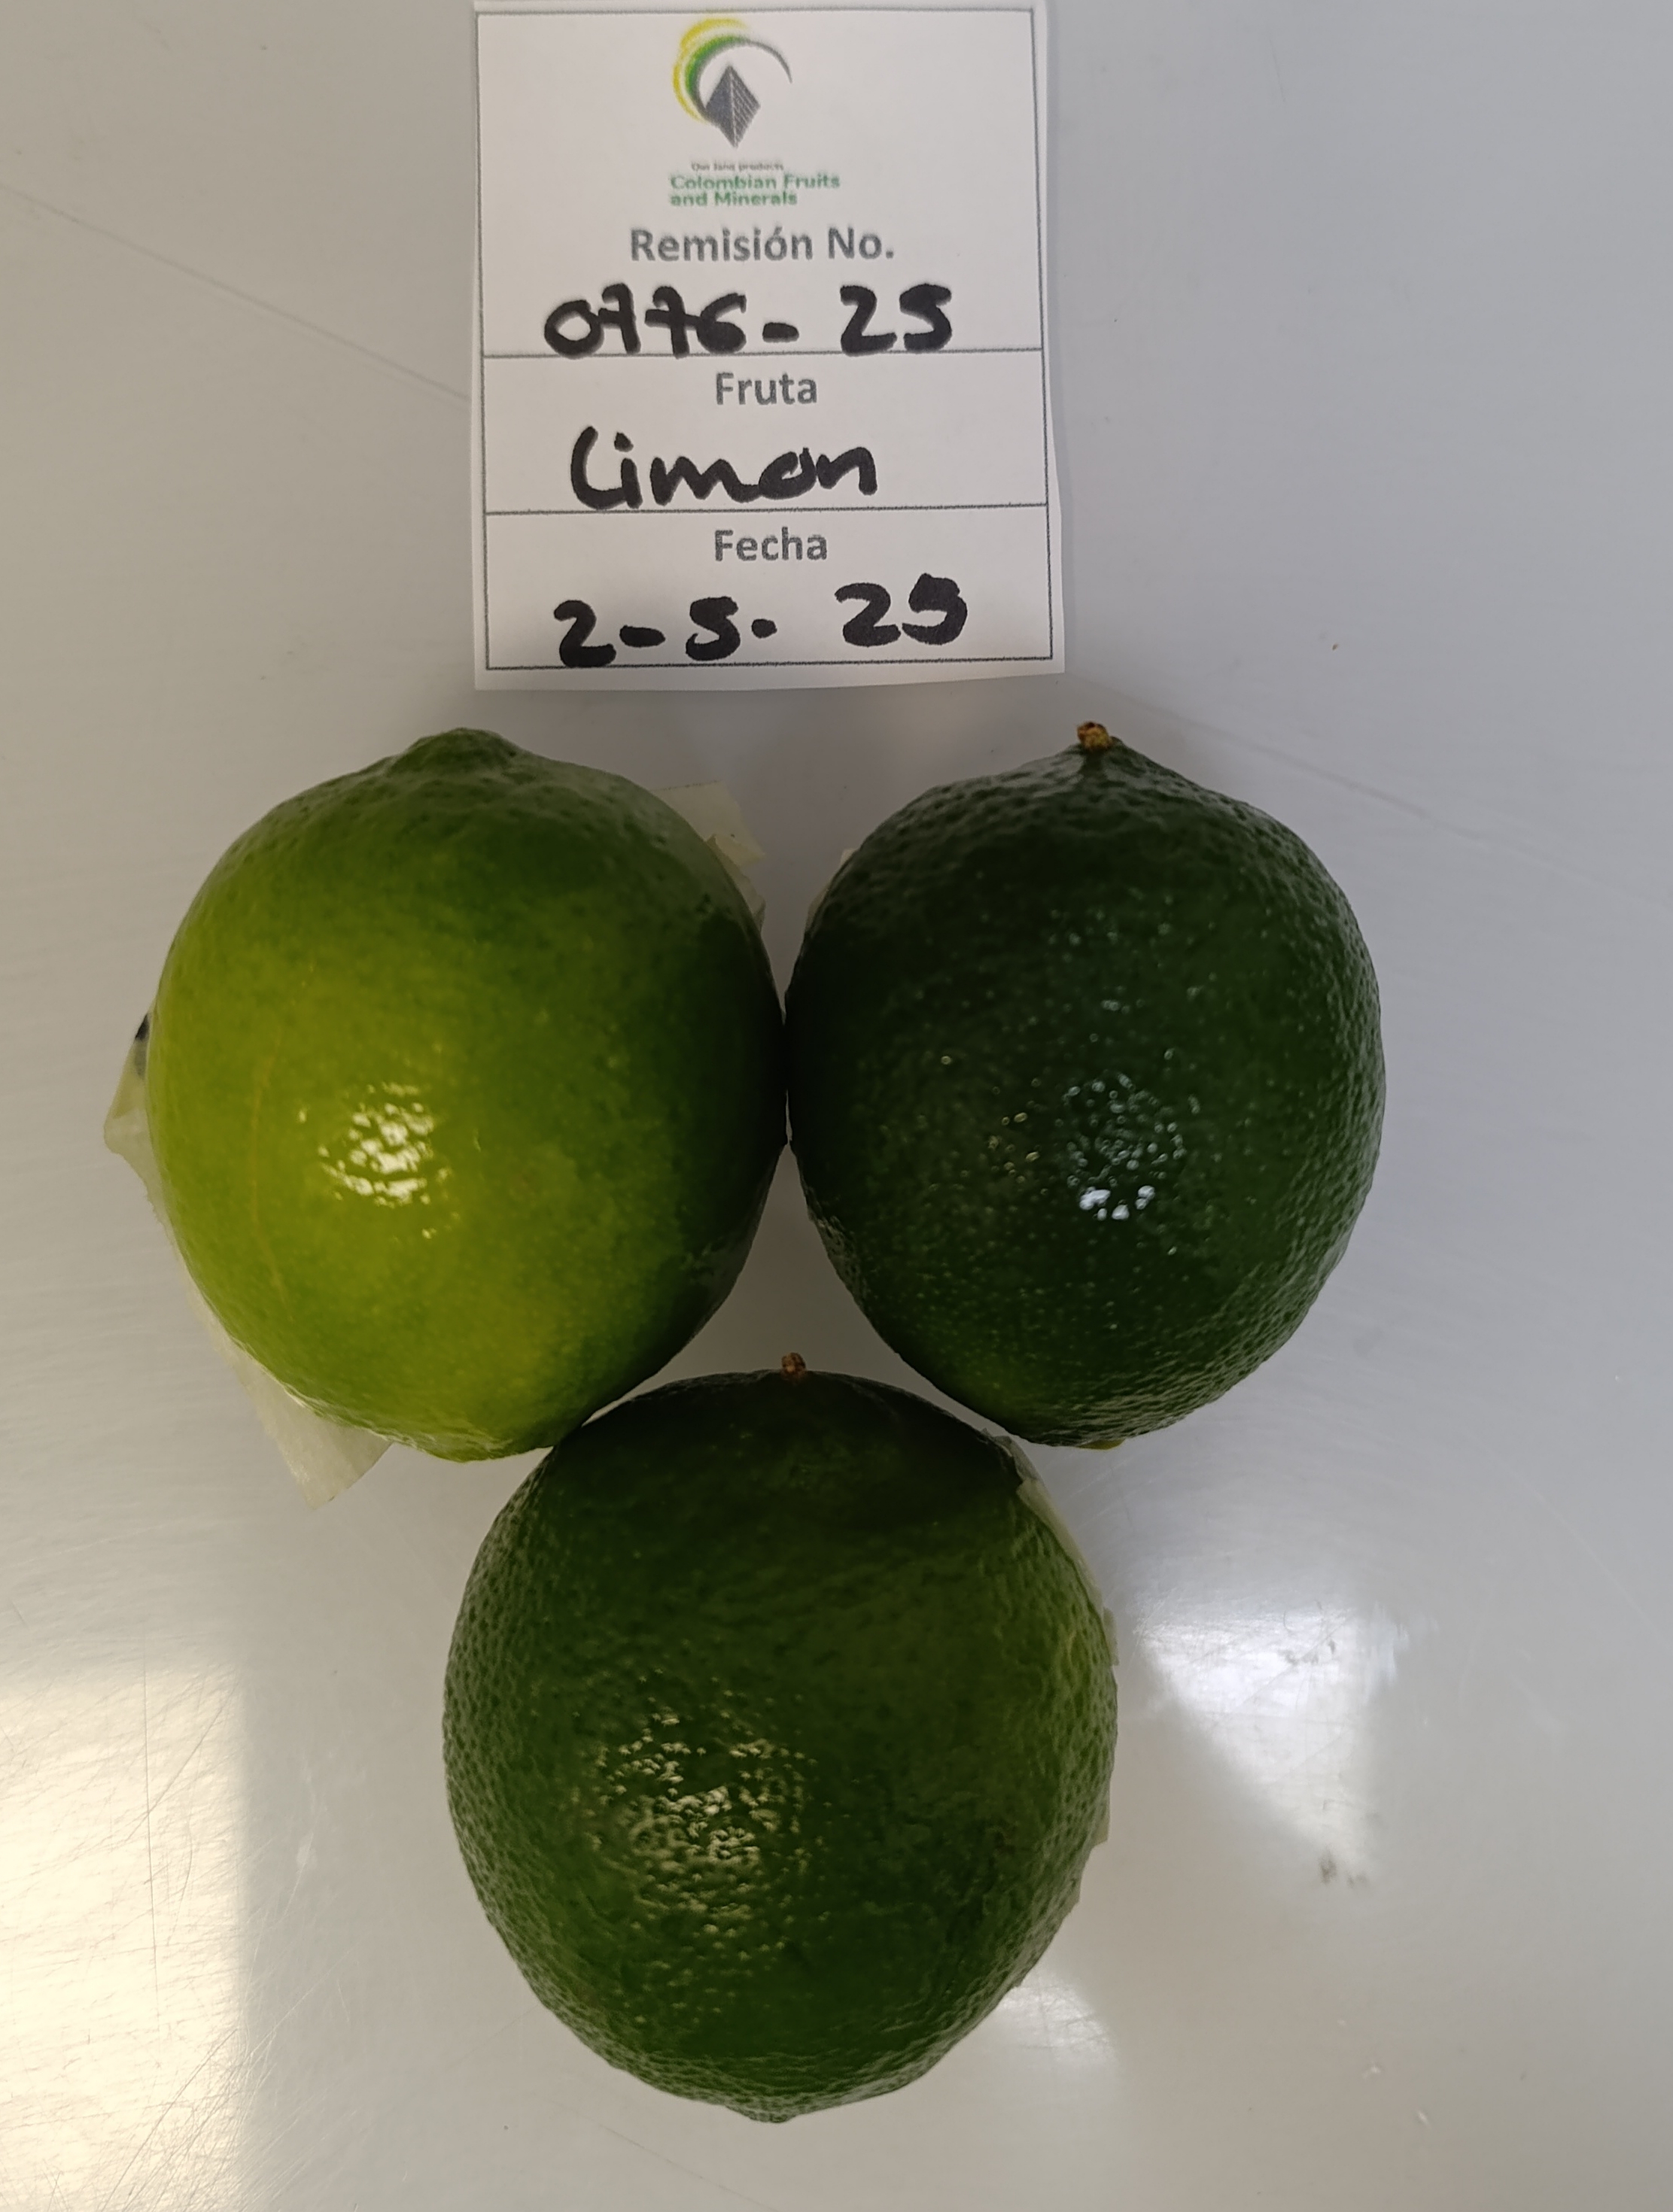 Our land products
Colombian Fruits
and Minerals
Remisión No.
0776-25
Fruta
Limon
Fecha
2-5-25